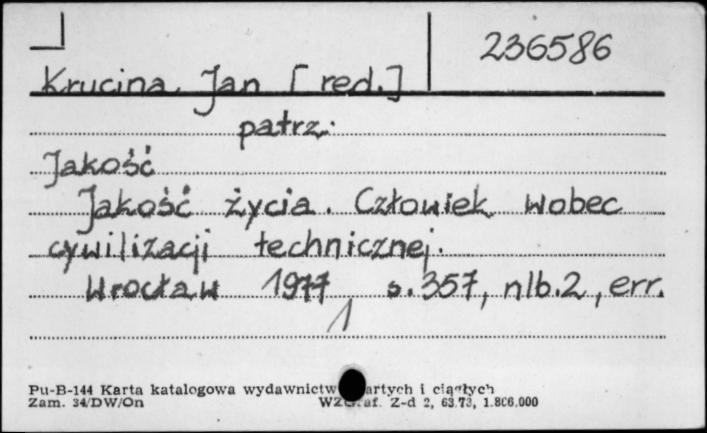 236586
Krucina Jan [red.]
patrz:
Jakość
Jakość życia. Człowiek wobec
cywilizacji technicznej.
Wrocław 1977 s. 357, nlb. 2, err.
1
Pu-B-144 Karta katalogowa wydawnictw i ciągłych
Zam. 34/DW/On Z-d 2, 63.73, 1.806.000